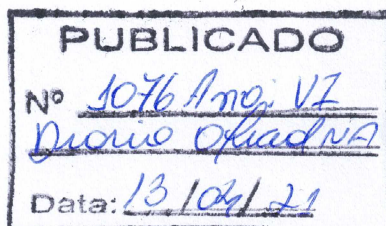 PUBLICADO
Nº 1076 Ano: VI
Diario Oficial NA
Data: 13 / 04 / 21